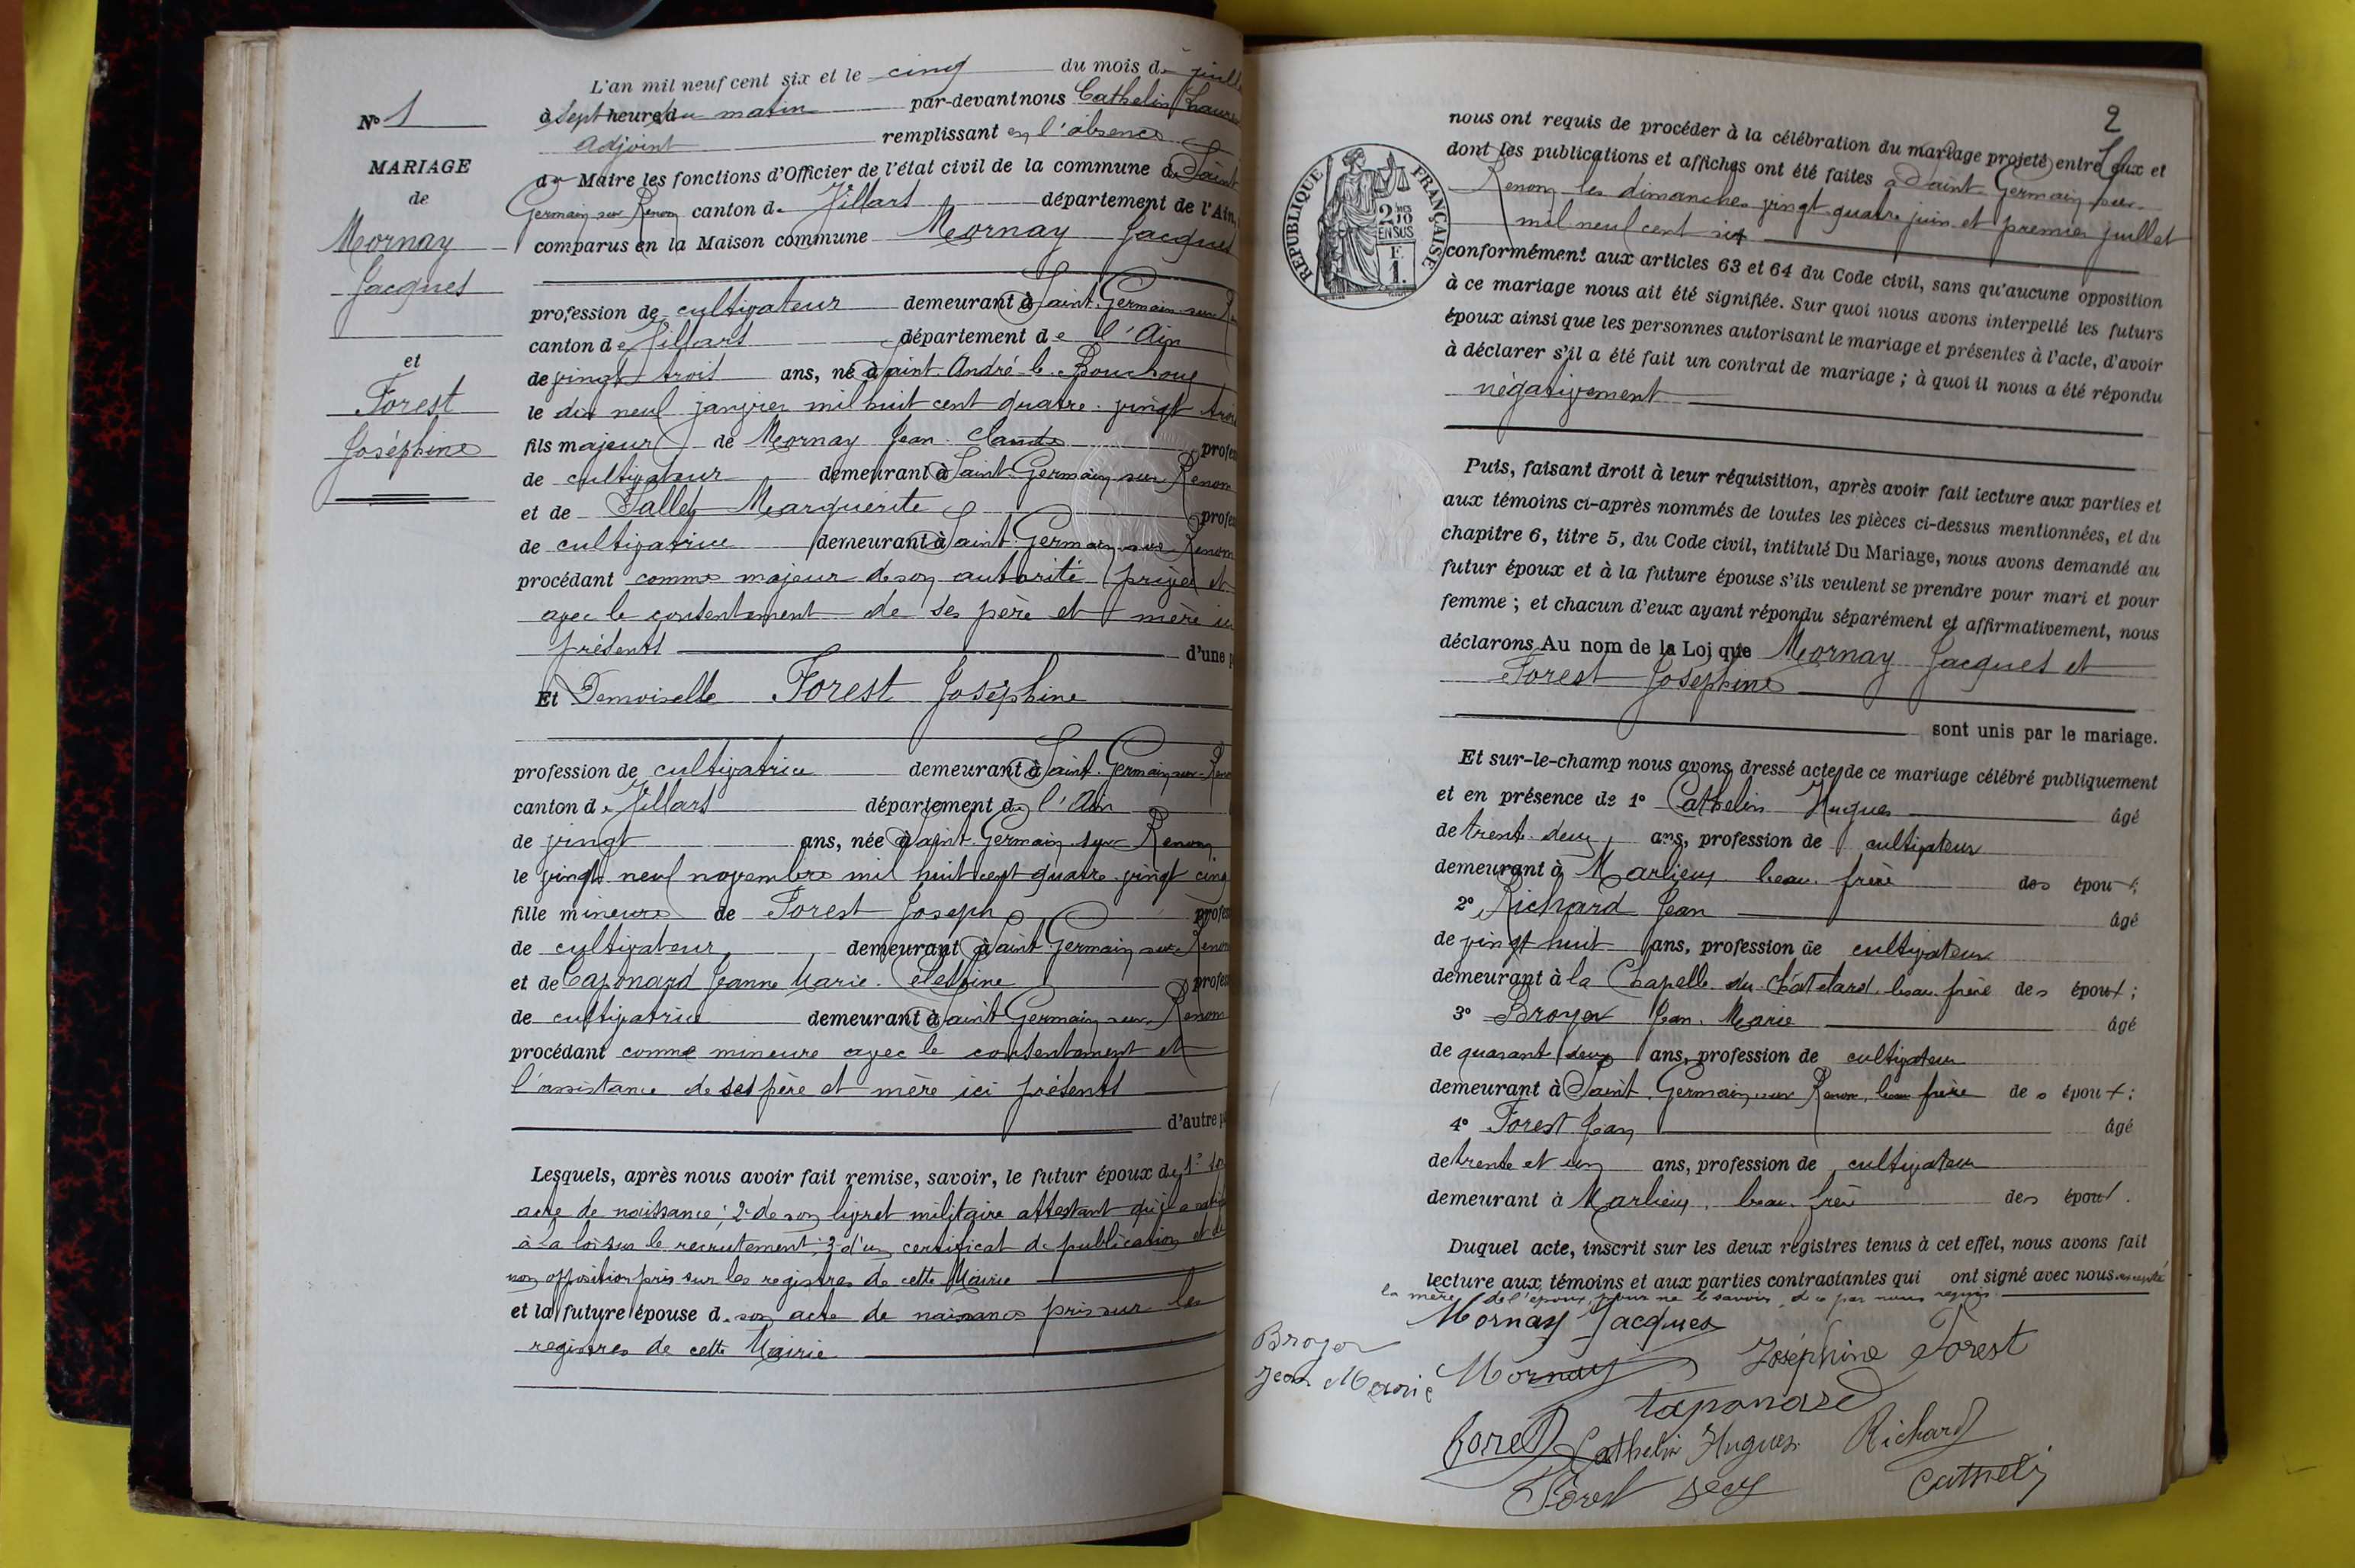 L'an mil neuf cent six et le cinq du mois de juill
à sept heures du matin par-devant nous Cathelin Lauren
adjoint remplissant en l'absence
du Maire les fonctions d'Officier de l'état civil de la commune de Saint
Germain sur Renon canton de Villars département de l'Ain,
comparus en la Maison commune Mornay Jacques
N° 1
MARIAGE
de
Mornay
Jacques
et
Forest
Joséphine
profession de cultivateur demeurant à Saint-Germain-sur Re
canton de Villars département de l'Ain
de vingt trois ans, né à Saint-André-le-Bouchoux
le dix neuf janvier mil huit cent quatre-vingt trois
fils majeur de Mornay Jean-Claude profes
de cultivateur demeurant à Saint-Germain-sur Renon
et de Sallet Marguerite profes
de cultivatrice demeurant à Saint-Germain-sur Renon
procédant comme majeur de son autorité privée et
avec le consentement de ses père et mère ici
présents d'une p
Et Demoiselle Forest Joséphine
profession de cultivatrice demeurant à Saint-Germain-sur-Reno
canton de Villars département de l'Ain
de vingt ans, née à Saint-Germain-sur Renon
le vingt neuf novembre mil huit cent quatre-vingt cinq
fille mineure de Forest Joseph profes
de cultivateur demeurant à Saint-Germain-sur-Renon
et de Taponard Jeanne Marie profes
de cultivatrice demeurant à Saint-Germain-sur-Renon
procédant comme mineure avec le consentement et
l'assistance de ses père et mère ici présents
d'autre p
Lesquels, après nous avoir fait remise, savoir, le futur époux de 1° son
acte de naissance; 2° de son livret militaire attestant qu'il a satisf
à la loi sur le recrutement; 3° d'un certificat de publication et de
non opposition pris sur les registres de cette Mairie
et la future épouse de son acte de naissance pris sur les
registres de cette Mairie
2
RÉPUBLIQUE FRANÇAISE
2 DMES
10
EN SUS
F.
1.
nous ont requis de procéder à la célébration du mariage projeté entre eux et
dont les publications et affiches ont été faites à Saint-Germain-sur-
Renon les dimanches vingt-quatre juin et premier juillet
mil neuf cent six
conformément aux articles 63 et 64 du Code civil, sans qu'aucune opposition
à ce mariage nous ait été signifiée. Sur quoi nous avons interpellé les futurs
époux ainsi que les personnes autorisant le mariage et présentes à l'acte, d'avoir
à déclarer s'il a été fait un contrat de mariage; à quoi il nous a été répondu
négativement
Puis, faisant droit à leur réquisition, après avoir fait lecture aux parties et
aux témoins ci-après nommés de toutes les pièces ci-dessus mentionnées, et du
chapitre 6, titre 5, du Code civil, intitulé Du Mariage, nous avons demandé au
futur époux et à la future épouse s'ils veulent se prendre pour mari et pour
femme; et chacun d'eux ayant répondu séparément et affirmativement, nous
déclarons Au nom de la Loi que Mornay Jacques et
Forest Joséphine
sont unis par le mariage.
Et sur-le-champ nous avons dressé acte de ce mariage célébré publiquement
et en présence de 1° Cathelin Hugues âgé
de trente-deux ans, profession de cultivateur
demeurant à Marlieux beau-frère des époux;
2° Richard Jean âgé
de vingt huit ans, profession de cultivateur
demeurant à la Chapelle-du-Châtelard, beau-frère des époux;
3° Broyer Jean-Marie âgé
de quarant deux ans, profession de cultivateur
demeurant à Saint-Germain-sur Renon, beau frère des époux;
4° Forest Jean âgé
de trente et un ans, profession de cultivateur
demeurant à Marlieux, beau-frère des époux.
Duquel acte, inscrit sur les deux registres tenus à cet effet, nous avons fait
lecture aux témoins et aux parties contractantes qui ont signé avec nous excepté
la mère de l'époux, pour ne le savoir, de ce par nous requis.
Mornay Jacques
Broyer
Jean Marie
Mornay
Joséphine Forest
taponard
foret
Cathelin Hugues
Richard
Forest
Cathelin